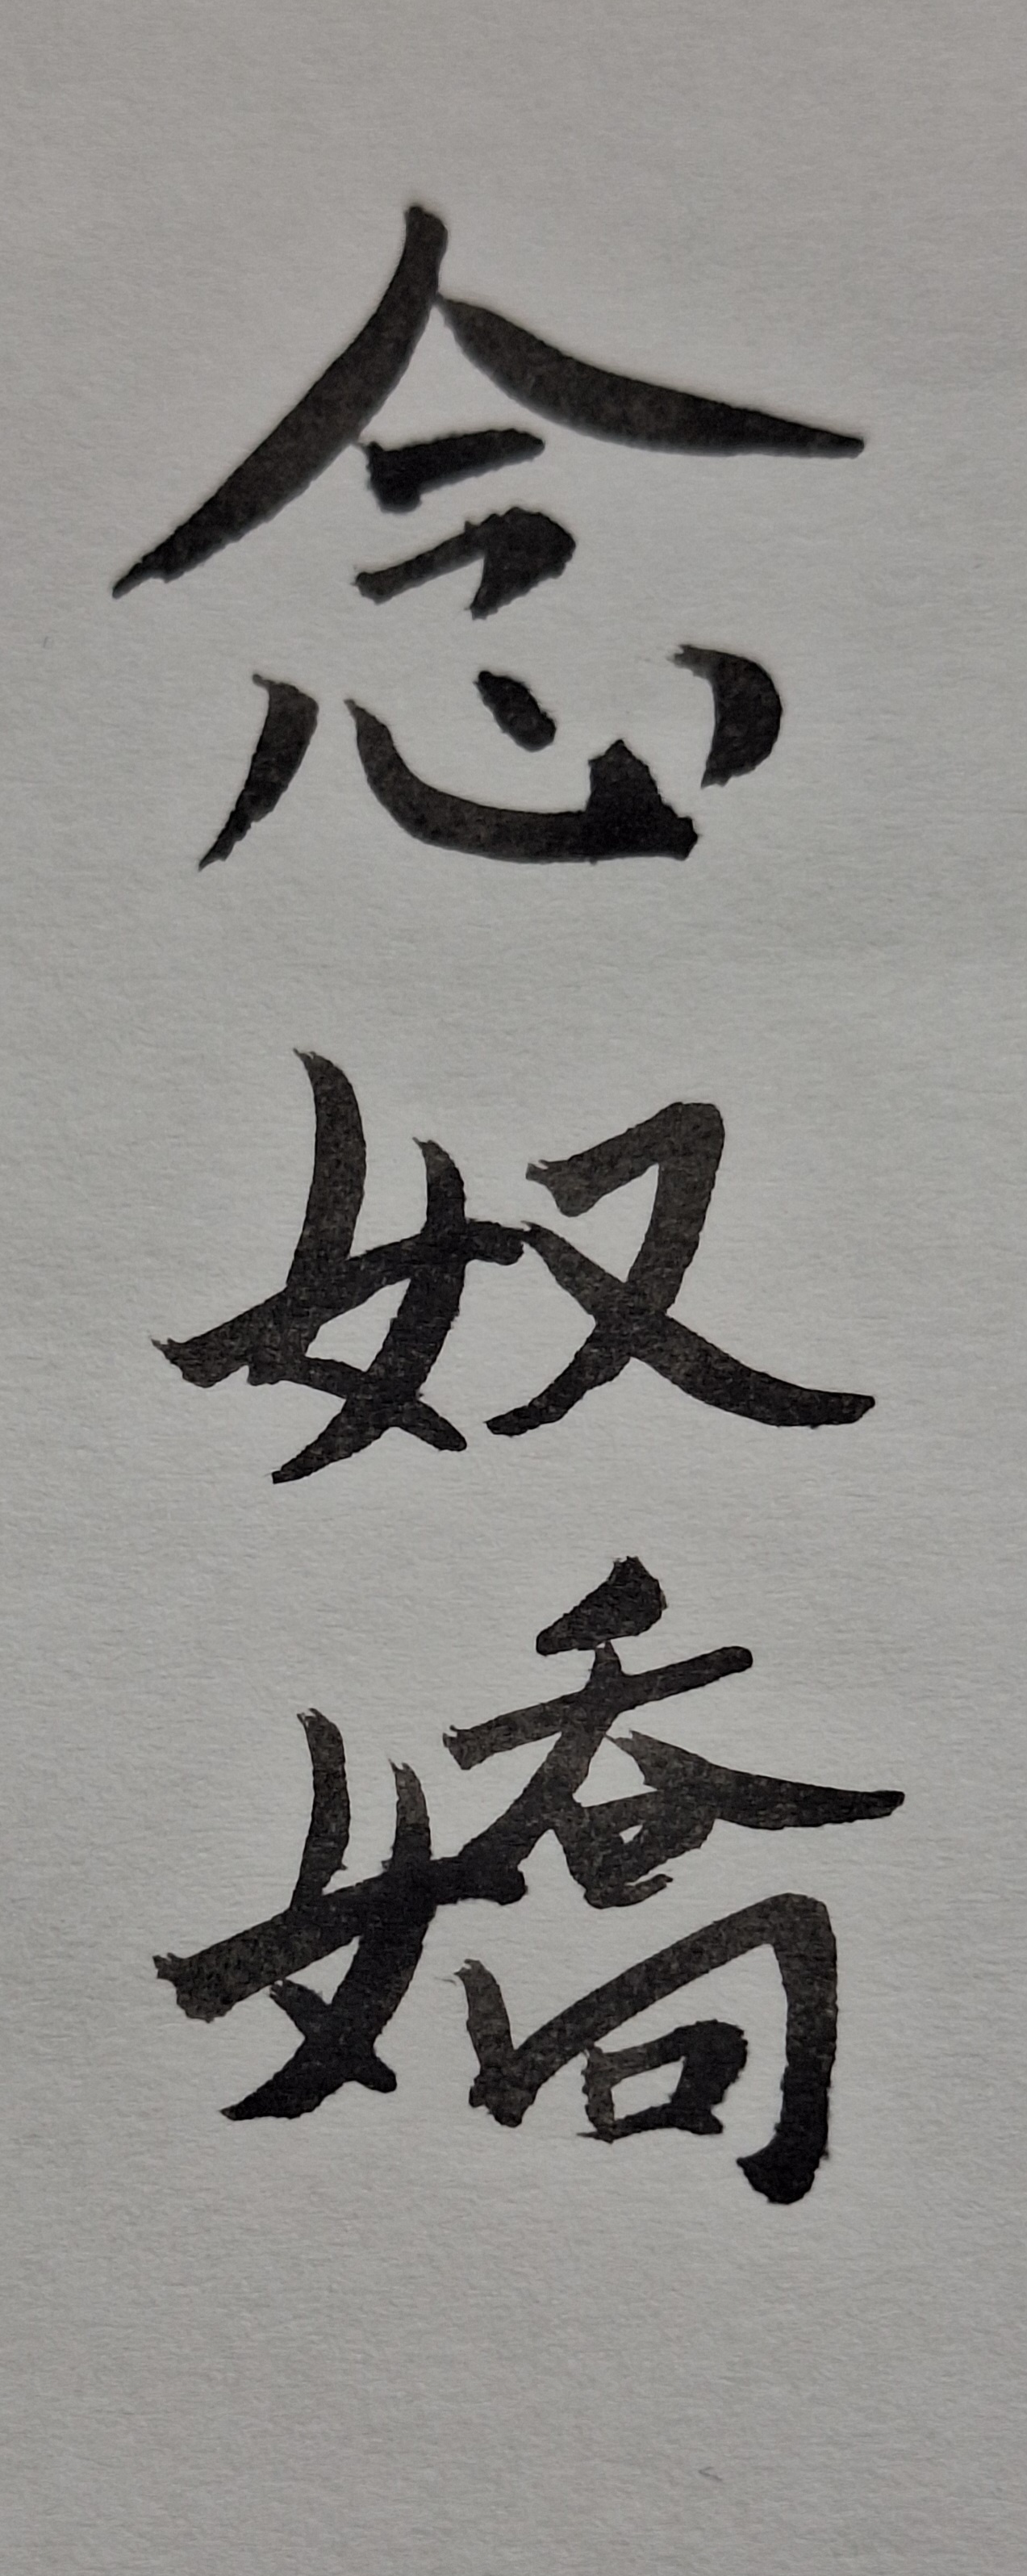 念奴嬌